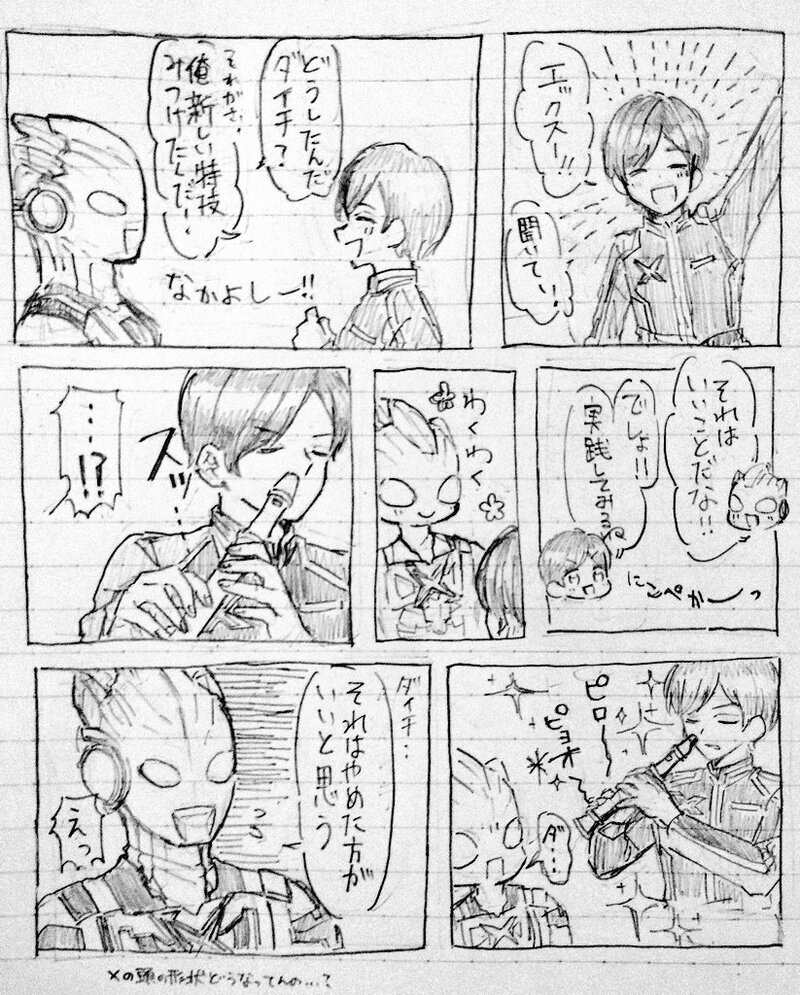 エックスー!!
聞いてぃ!
どうしたんだ
ダイチ?
それがさ、
俺新しい特技
みつけたんだ!
なかよしー!!
それは
いいことだな!!
でしょ!!
実践してみるね
にこぺかーっ
わくわく
スッ…
…!?
ピロー
ピョオ
ダ…
ダイチ…
それはやめた方が
いいと思う
えっ
Xの頭の形状どうなってんの…?